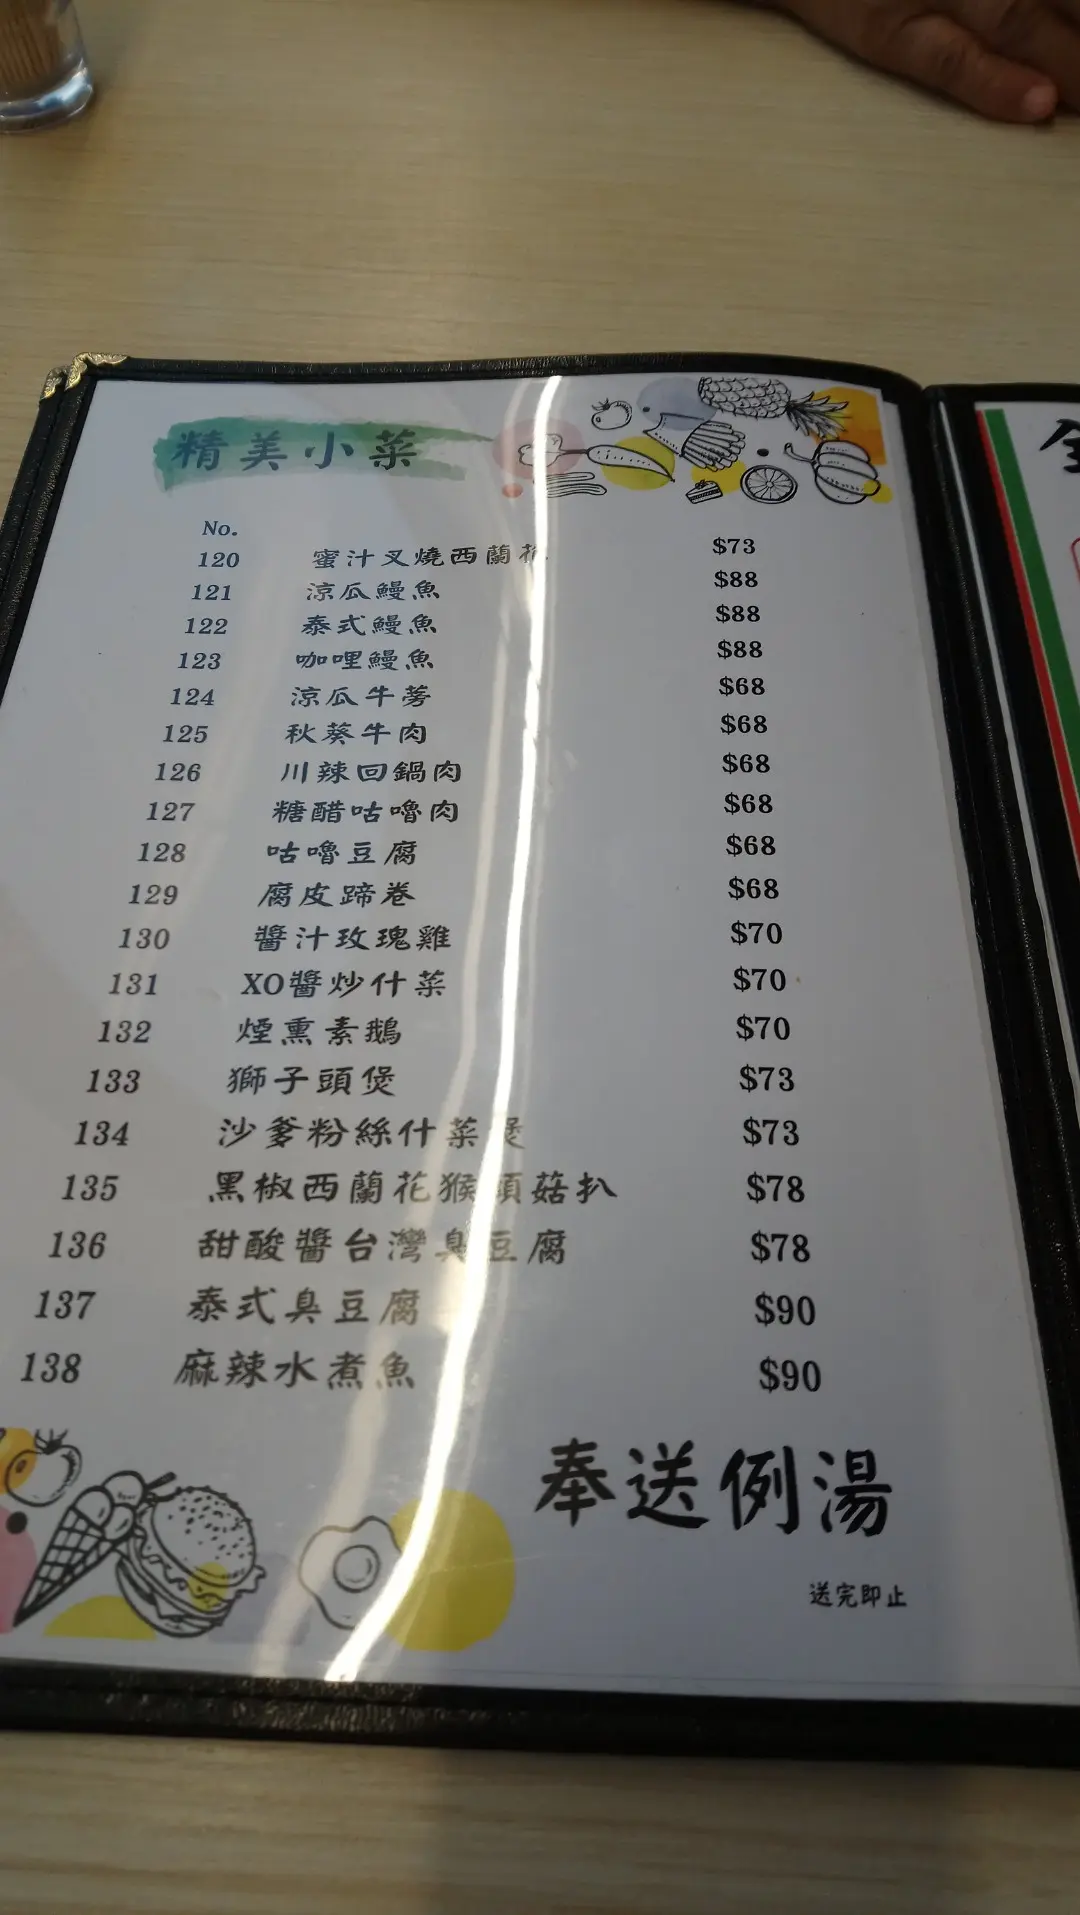 精美小菜
No.
120 蜜汁叉燒西蘭花 $73
121 涼瓜鰻魚 $88
122 泰式鰻魚 $88
123 咖哩鰻魚 $88
124 涼瓜牛蒡 $68
125 秋葵牛肉 $68
126 川辣回鍋肉 $68
127 糖醋咕嚕肉 $68
128 咕嚕豆腐 $68
129 腐皮蹄卷 $68
130 醬汁玫瑰雞 $70
131 XO醬炒什菜 $70
132 煙熏素鵝 $70
133 獅子頭煲 $73
134 沙爹粉絲什菜煲 $73
135 黑椒西蘭花猴頭菇扒 $78
136 甜酸醬台灣臭豆腐 $78
137 泰式臭豆腐 $90
138 麻辣水煮魚 $90
奉送例湯
送完即止